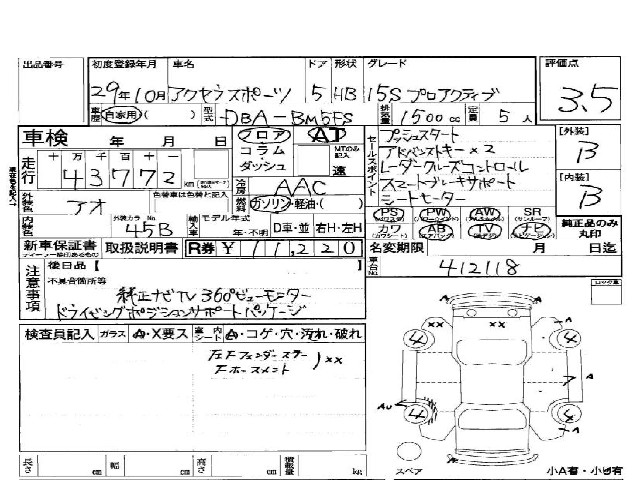 出品番号 初度登録年月 車名 ドア 形状 グレード 評価点
29年10月 アクセラスポーツ 5 HB 15S プロアクティブ 3.5
車歴 自家用( ) 型式 DBA-BM5FS 排気量 1500cc 定員 5人
車検 年 月 日 フロア AT セールスポイント プッシュスタート [外装]
走行 十 万 千 百 十 一 コラム MTのみ記入 アドバンストキー×2 B
43772 km ダッシュ 速 レーダークルーズコントロール
外装色 アオ 色替車は色替と記入 冷房 AAC スマートブレーキサポート [内装]
燃料 ガソリン・軽油・( ) シートヒーター B
内装色 外装カラーNo. 45B 輸入車 モデル年式 年・不明 D車・並 右H・左H PS PW AW SR 純正品のみ丸印
カワ AB TV ナビ
新車保証書 取扱説明書 R券 ¥11,220 名変期限 月 日迄
注意事項 後日品[ 車台No. 412118
不具合箇所等
純正ナビTV 360°ビューモニター
ドライビングポジションサポートパッケージ
検査員記入 ガラス A・X要ス 車内シート A・コゲ・穴・汚れ・破れ
左Fフェンダー )××
××
A
4 4
7 A
A
4 4
長さ cm 幅 cm 高さ cm 積載量 kg スペア 小A有・小U有